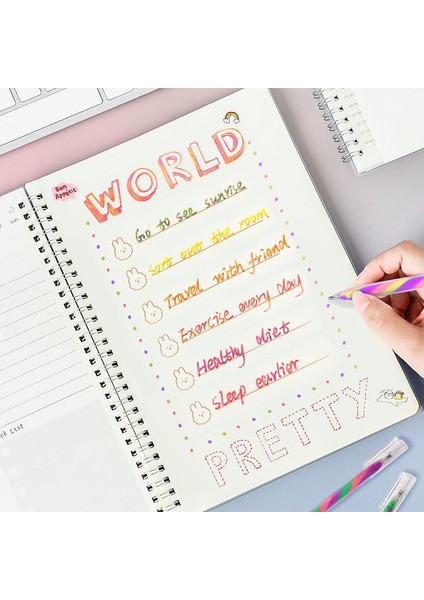 Bon
Appetit
WORLD
Go to see sunrise
Sort out the room
Travel with friend
Exercise every day
Healthy diet
sleep earlier
PRETTY
ck List